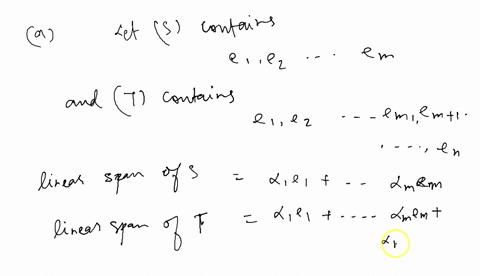 (a) Let (S) contains
e₁, e₂ ... eₘ
and (T) contains
e₁, e₂ .... eₘ, eₘ₊₁.
....., eₙ
linear span of S = α₁e₁ + .. αₘeₘ
linear span of T = α₁e₁ + ..... αₘeₘ +